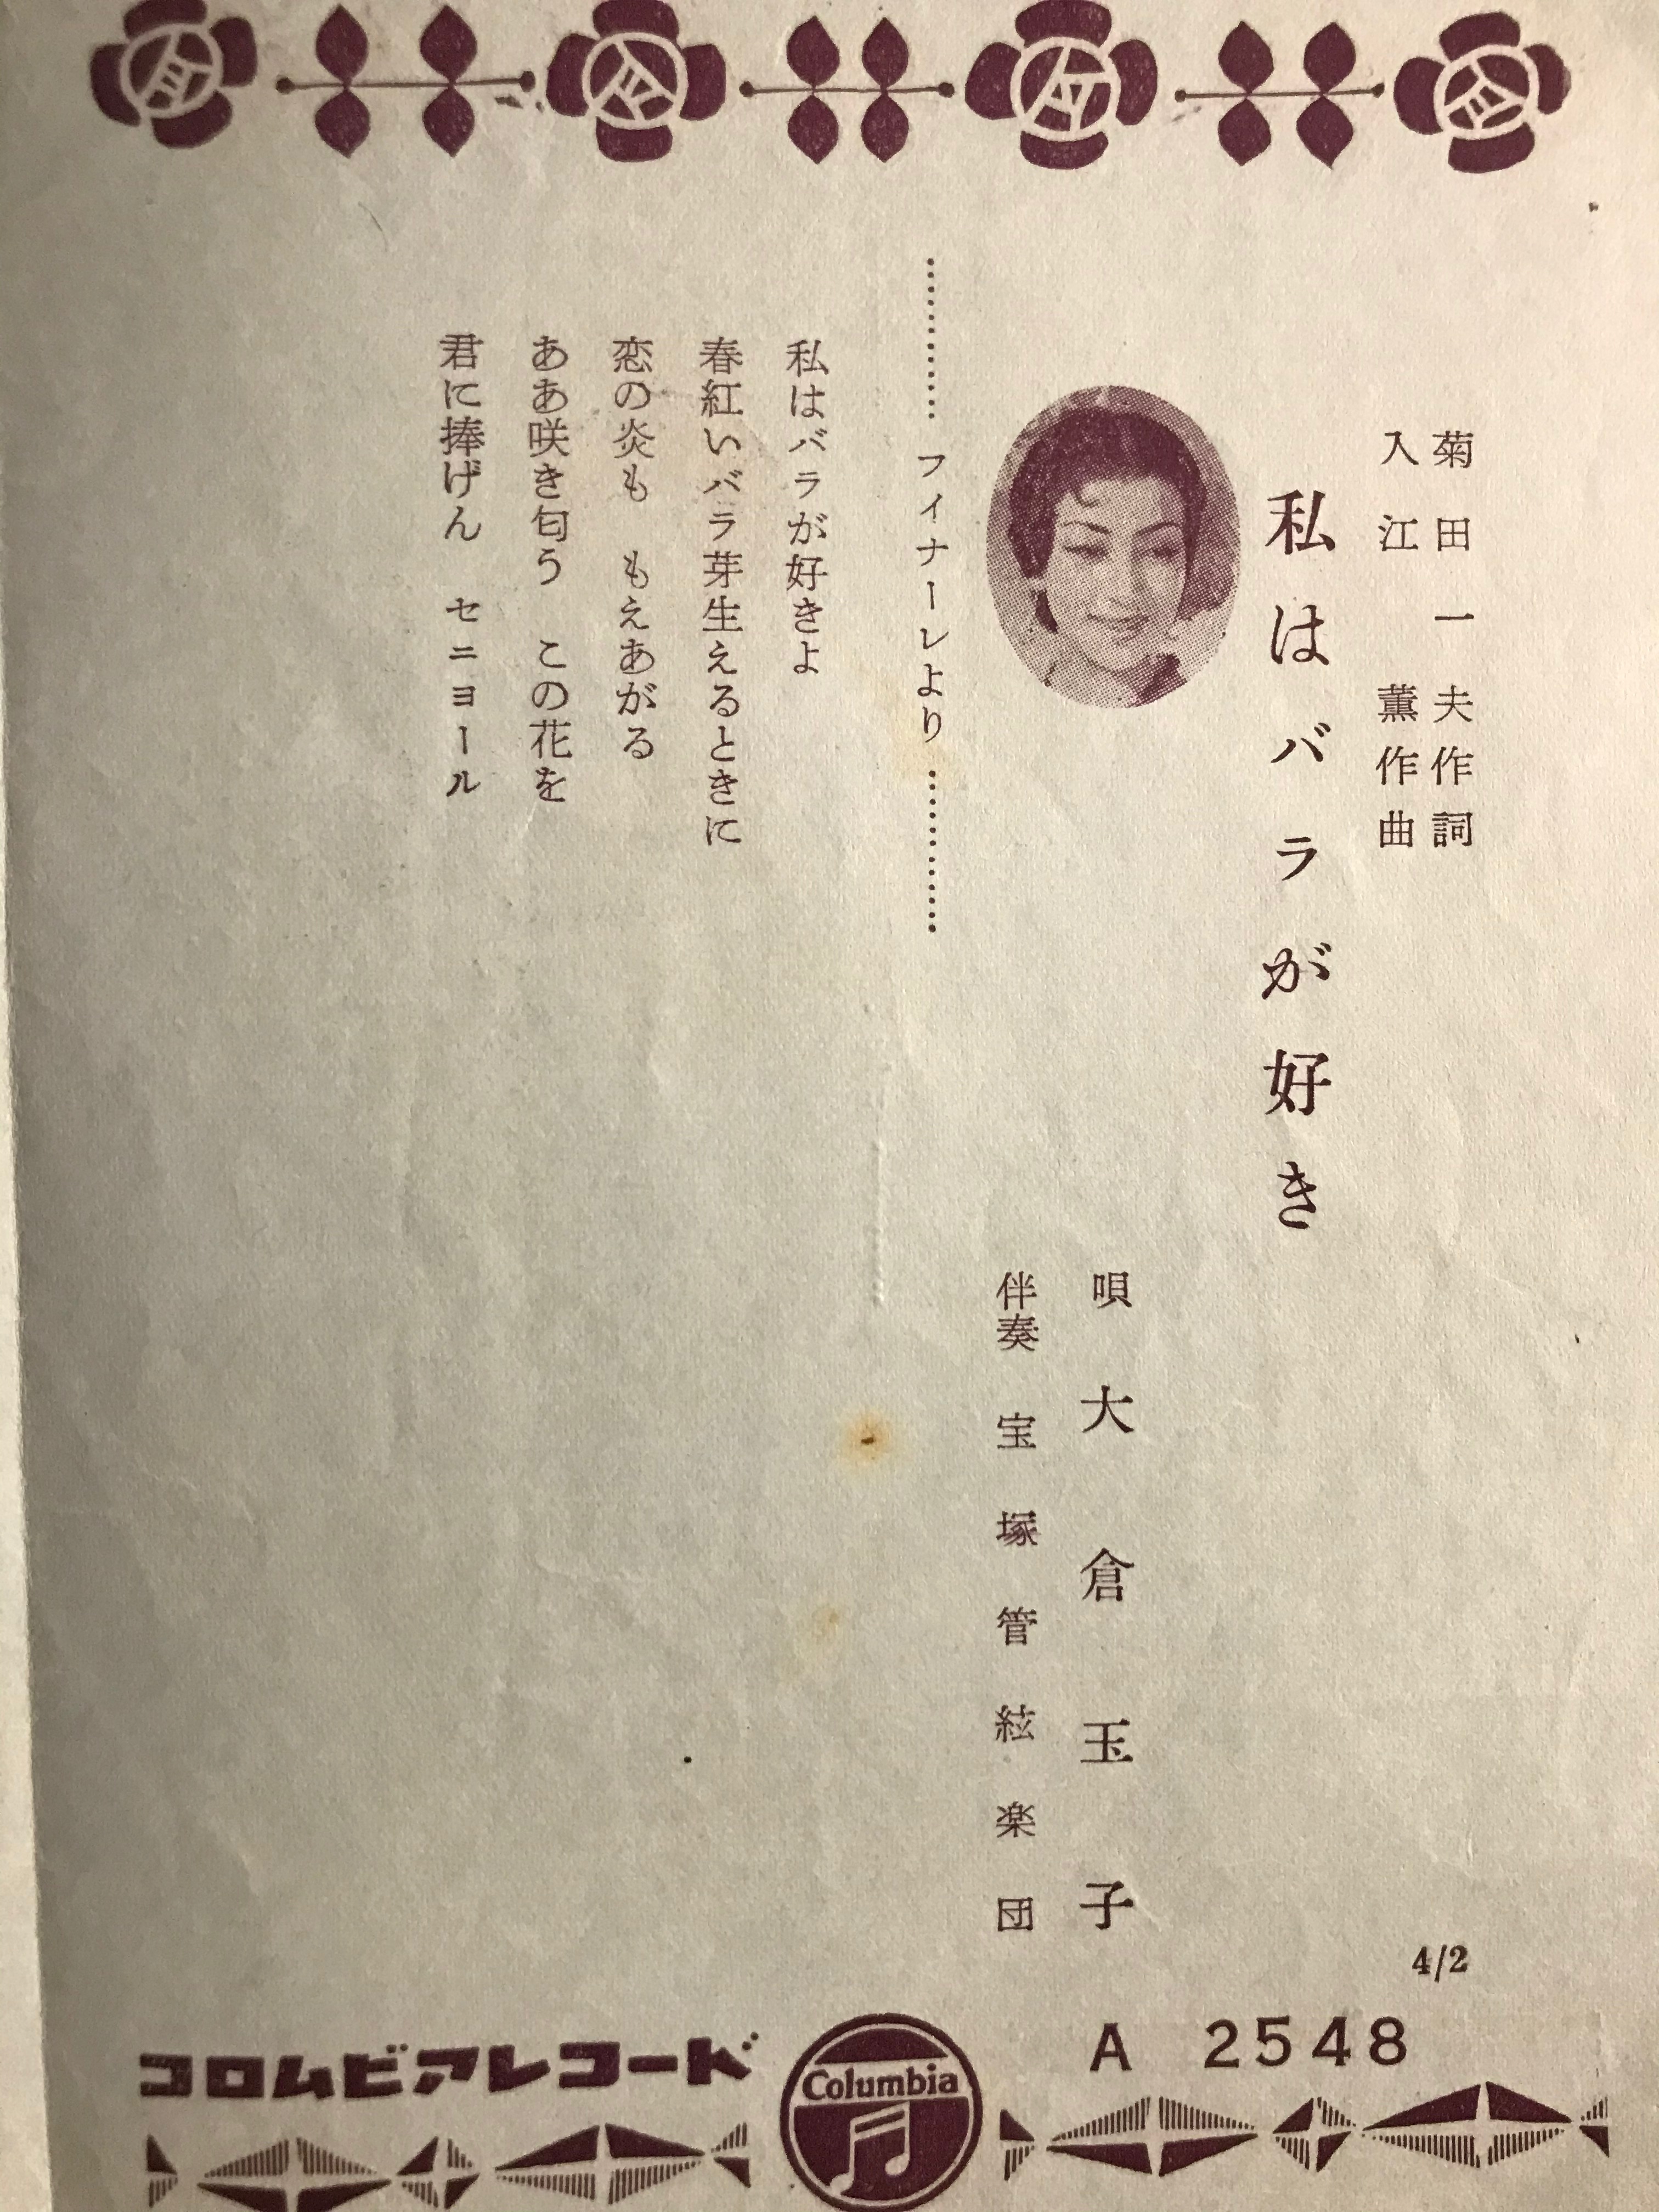 菊田一夫作詞
入江薫作曲
私はバラが好き
唄 大倉玉子
伴奏 宝塚管絃楽団
…………フイナーレより…………
私はバラが好きよ
春紅いバラ芽生えるときに
恋の炎も もえあがる
ああ咲き匂う この花を
君に捧げん セニヨール
4/2
A 2548
Columbia
コロムビアレコード